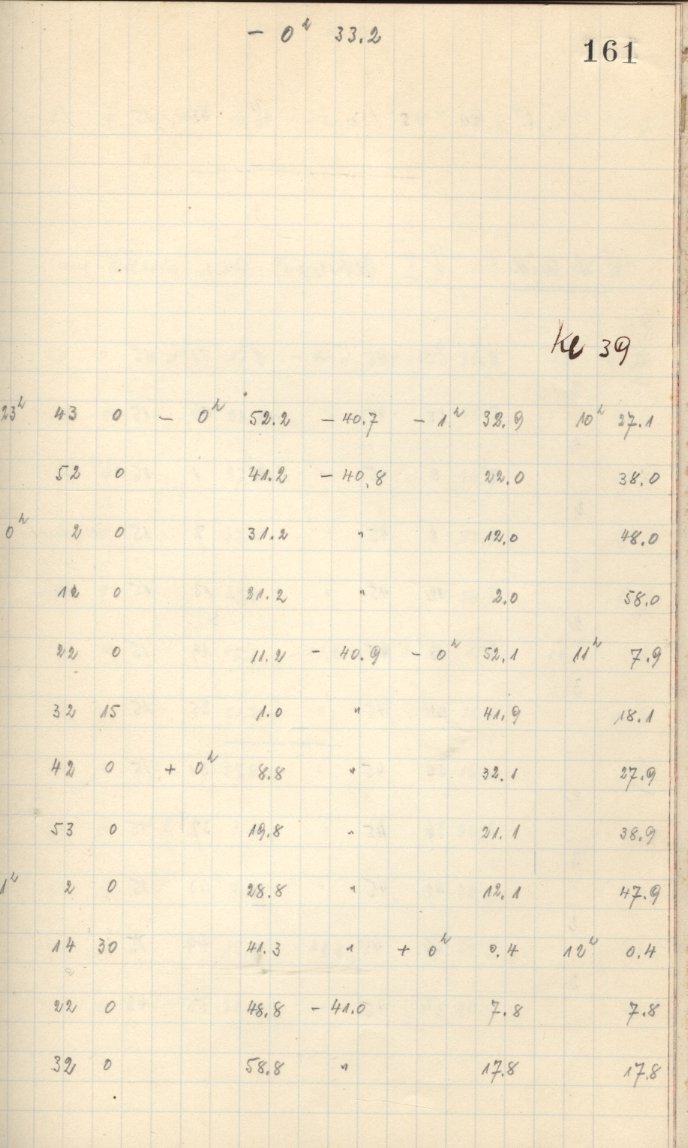 - 0ʰ 33.2
161
Ke 39
23ʰ 43 0 - 0ʰ 52.2 - 40.7 - 1ʰ 32.9 10ʰ 27.1
52 0 41.2 - 40.8 22.0 38.0
0ʰ 2 0 31.2 " 12.0 48.0
12 0 21.2 " 2.0 58.0
22 0 11.2 - 40.9 - 0ʰ 52.1 11ʰ 7.9
32 15 1.0 " 41.9 18.1
42 0 + 0ʰ 8.8 " 32.1 27.9
53 0 19.8 " 21.1 38.9
1ʰ 2 0 28.8 " 12.1 47.9
14 30 41.3 " + 0ʰ 0.4 12ʰ 0.4
22 0 48.8 - 41.0 7.8 7.8
32 0 58.8 " 17.8 17.8